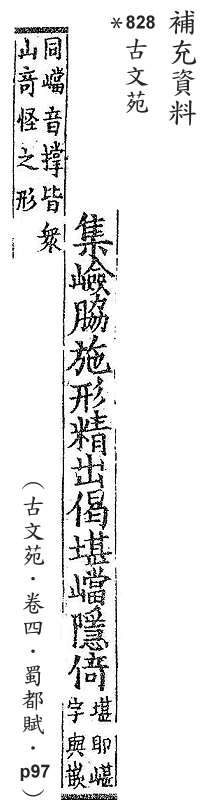 補充資料
*828
古文苑
集嶮脇施形精出偈堪嵣隱倚
堪即嵁
字與嵌
同嵣音撐皆衆
山奇怪之形
(古文苑·卷四·蜀都賦·p97)